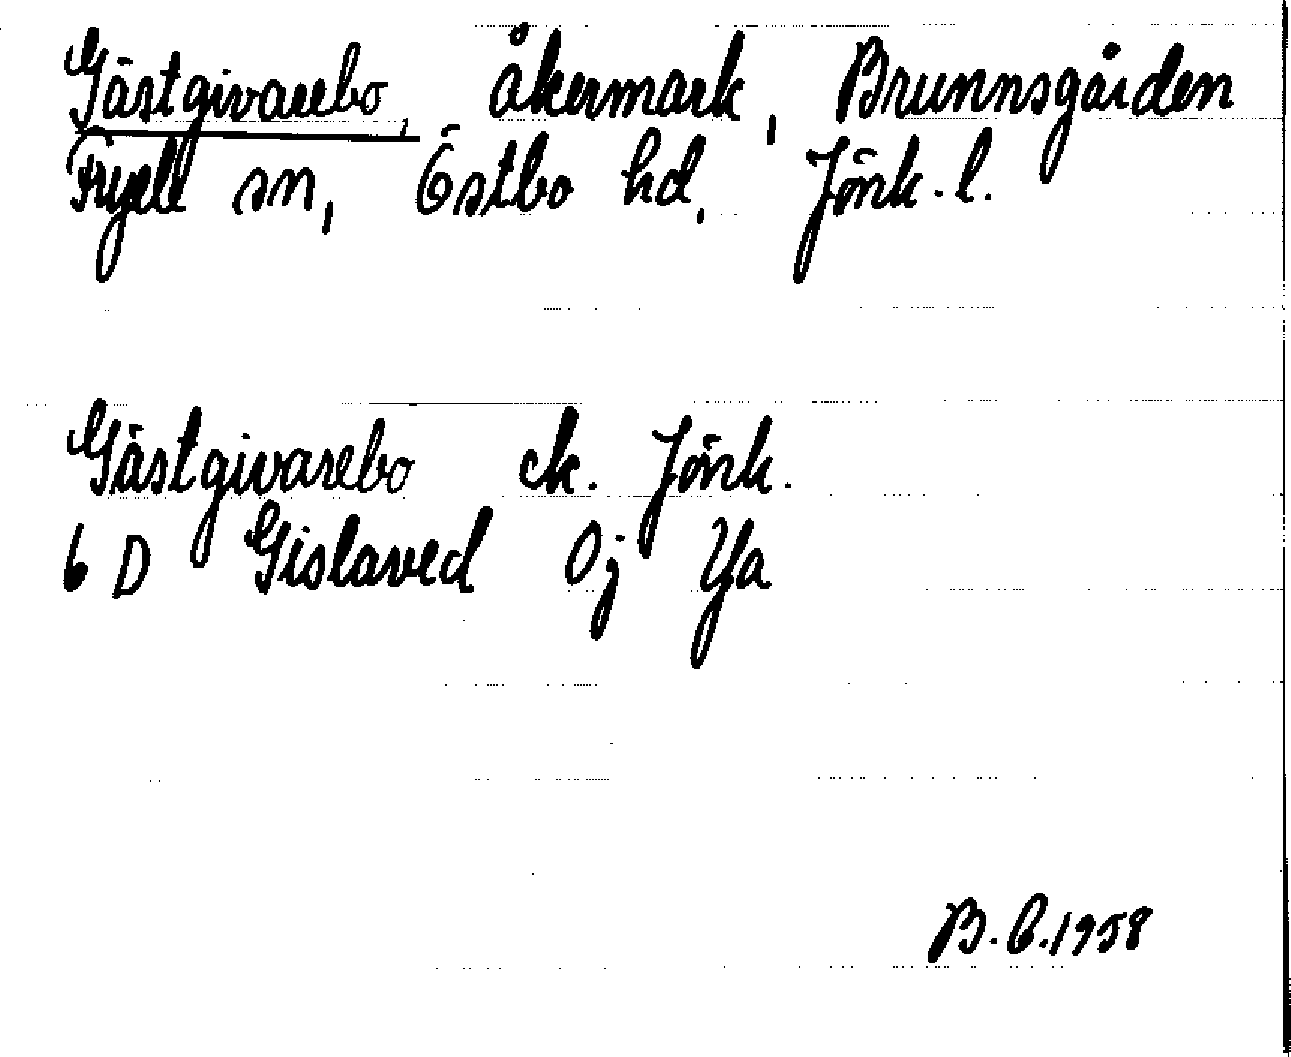 Gästgivarebo, åkermark, Brunnsgården
Fryele sn, Östbo hd, Jönk. l.
Gästgivarebo ek. Jönk.
6 D Gislaved 0j Ya
B.C. 1958